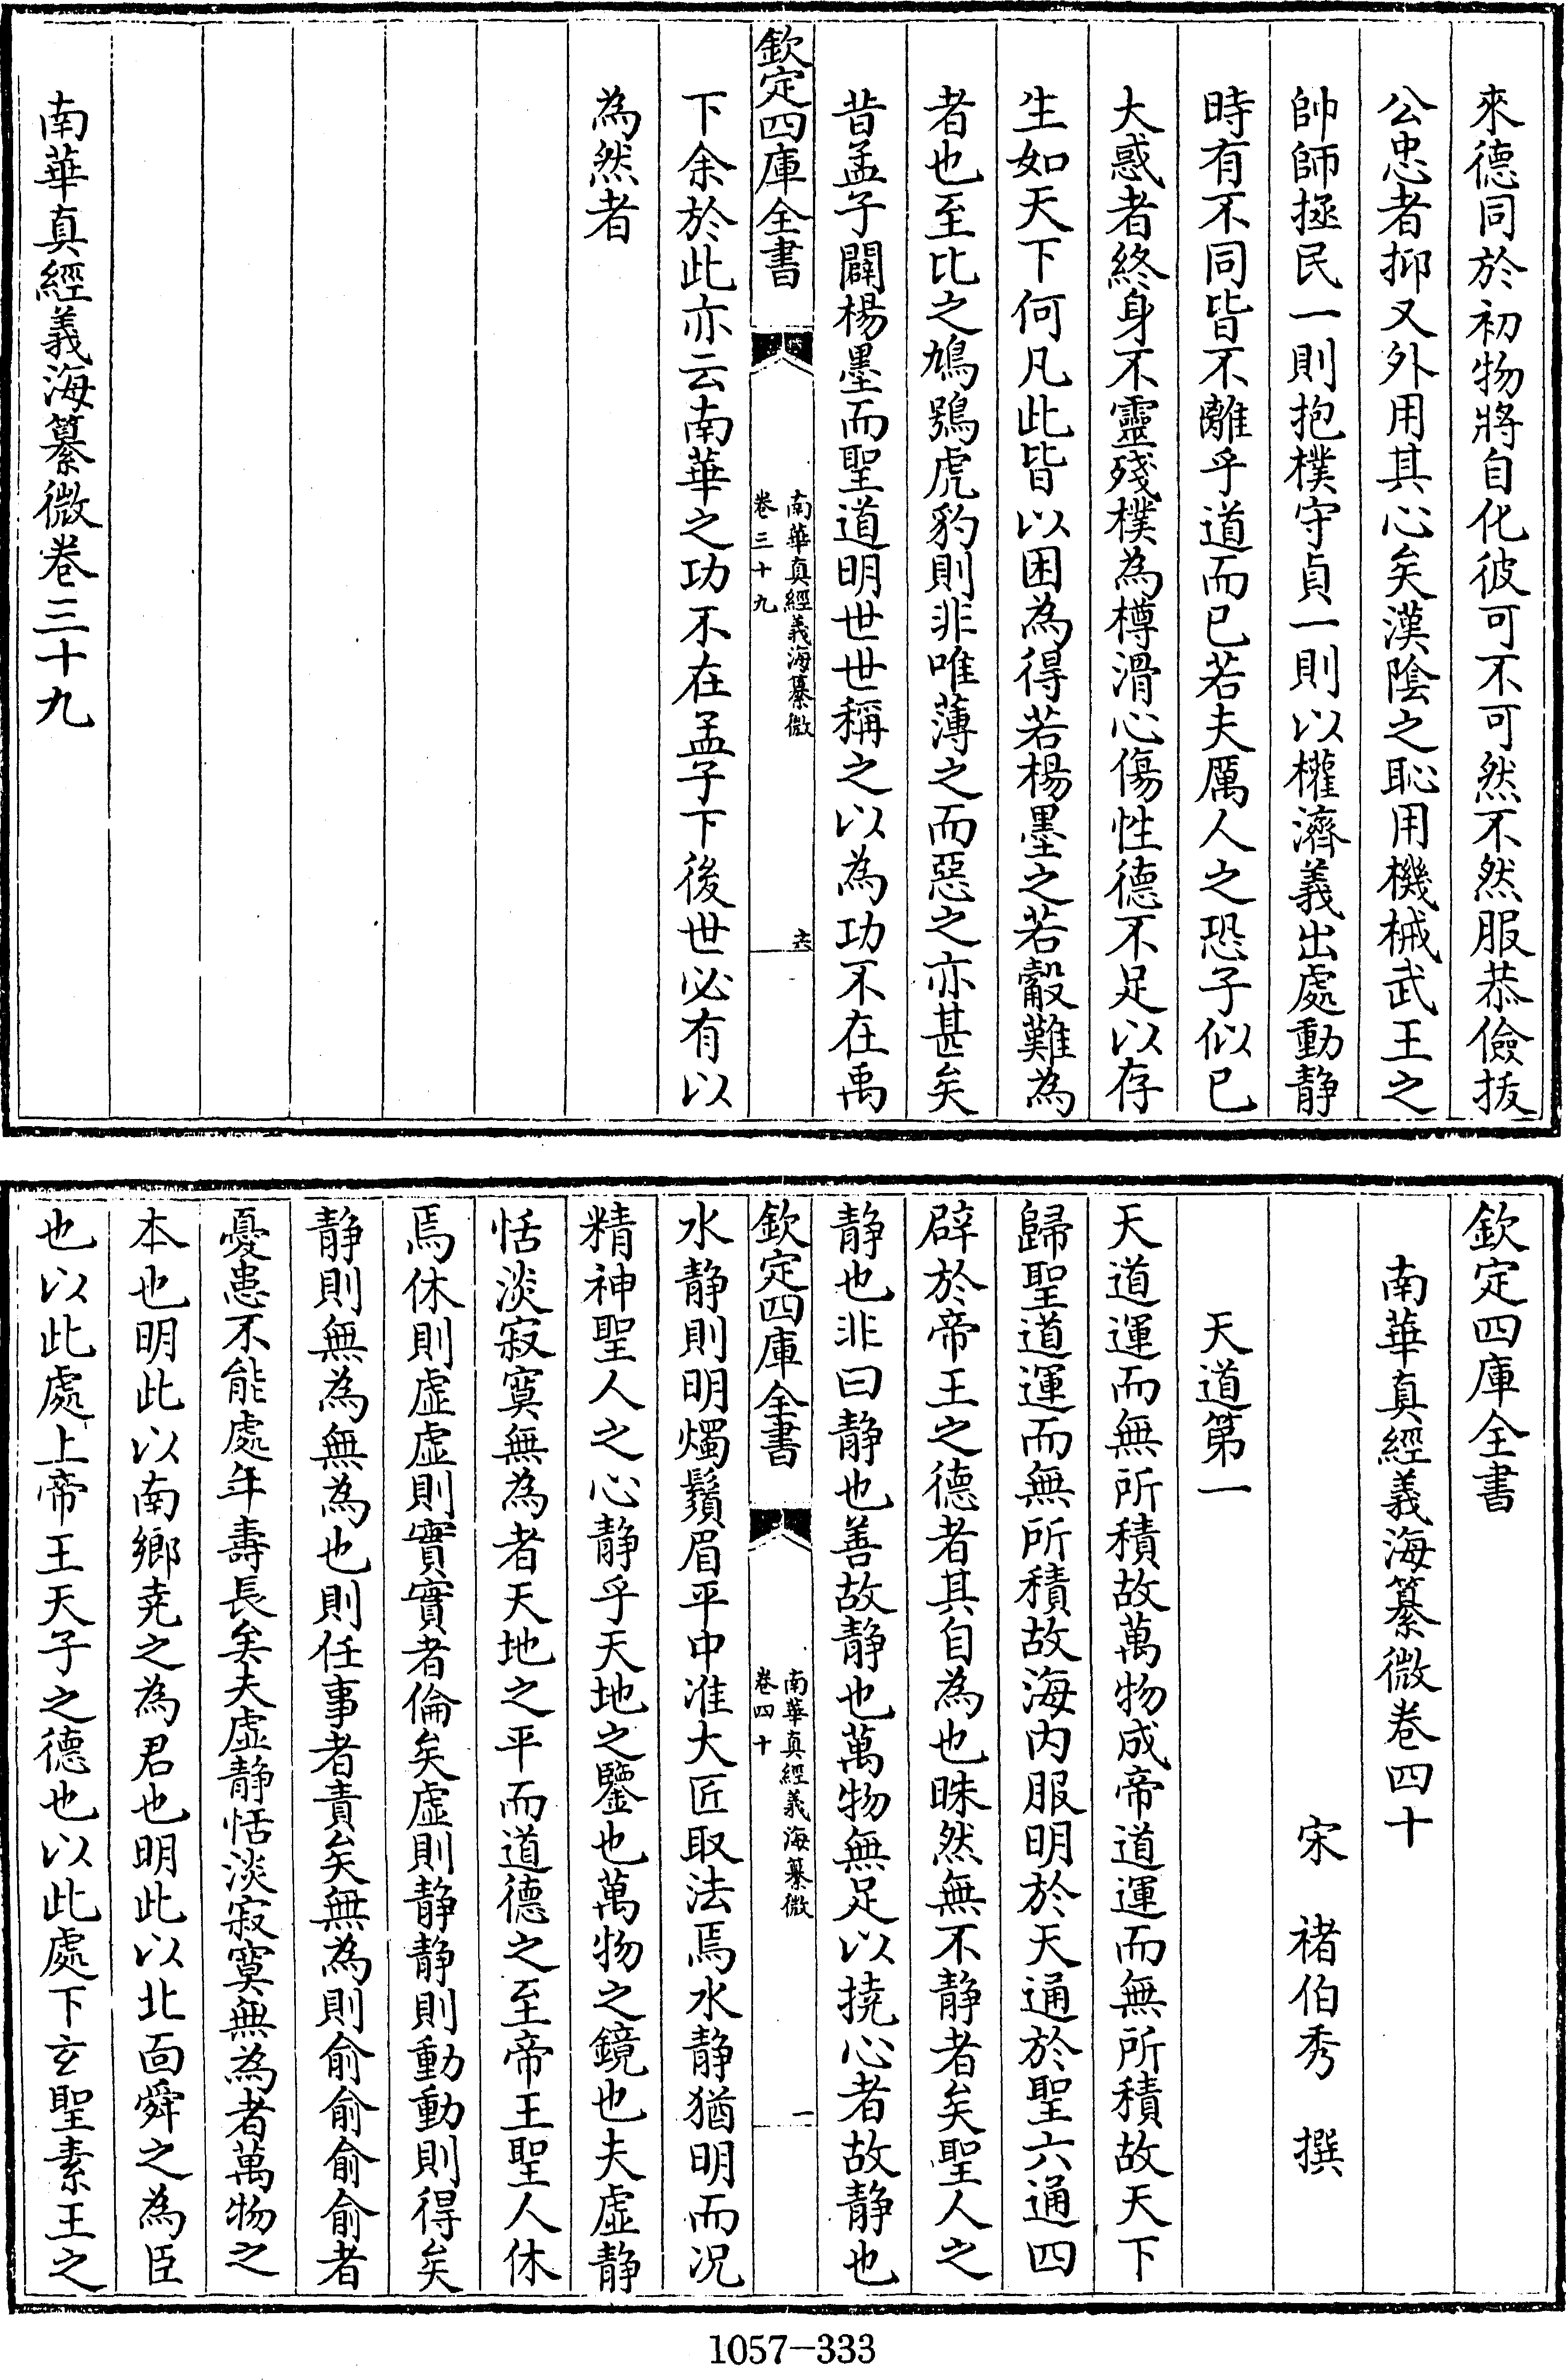 來德同於初物將自化彼可不可然不然服恭儉拔
公忠者抑又外用其心矣漢陰之恥用機械武王之
帥師拯民一則抱樸守貞一則以權濟義出處動静
時有不同皆不離乎道而已若夫厲人之恐子似已
大惑者終身不靈殘樸為樽滑心傷性德不足以存
生如天下何凡此皆以困為得若楊墨之若鷇難為
者也至比之鳩鴞虎豹則非唯薄之而惡之亦甚矣
昔孟子闢楊墨而聖道明世世稱之以為功不在禹
欽定四庫全書
南華真經義海纂微
卷三十九
六
下余於此亦云南華之功不在孟子下後世必有以
為然者
南華真經義海纂微卷三十九
欽定四庫全書
南華真經義海纂微卷四十
宋 褚伯秀 撰
天道第一
天道運而無所積故萬物成帝道運而無所積故天下
歸聖道運而無所積故海内服明於天通於聖六通四
辟於帝王之德者其自為也昧然無不静者矣聖人之
静也非曰静也善故静也萬物無足以撓心者故静也
欽定四庫全書
南華真經義海纂微
卷四十
一
水静則明燭鬚眉平中准大匠取法焉水静猶明而况
精神聖人之心静乎天地之鑒也萬物之鏡也夫虚静
恬淡寂寞無為者天地之平而道德之至帝王聖人休
焉休則虚虚則實實者倫矣虚則静静則動動則得矣
静則無為無為也則任事者責矣無為則俞俞俞俞者
憂患不能處年壽長矣夫虚静恬淡寂寞無為者萬物之
本也明此以南鄉尭之為君也明此以北面舜之為臣
也以此處上帝王天子之德也以此處下玄聖素王之
1057-333